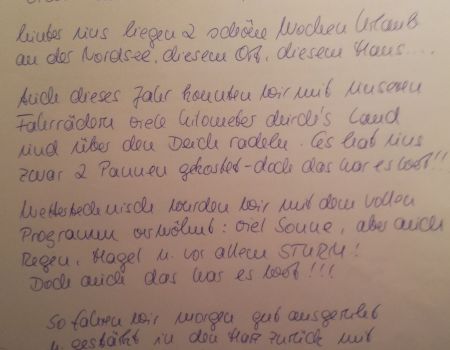 hinter uns liegen 2 schöne Wochen Urlaub
an der Nordsee, diesem Ort, diesem Haus....
Auch dieses Jahr konnten wir mit unseren
Fahrrädern viele Kilometer durch's Land
und über den Deich radeln. Es hat uns
zwar 2 Pannen gekostet - doch das war es wert!!
Wettertechnisch wurden wir mit dem vollen
Programm verwöhnt: viel Sonne, aber auch
Regen, Hagel u. vor allem STURM!
Doch auch das war es wert!!!
So fahren wir morgen gut ausgeruht
u. gestärkt in den Harz zurück mit